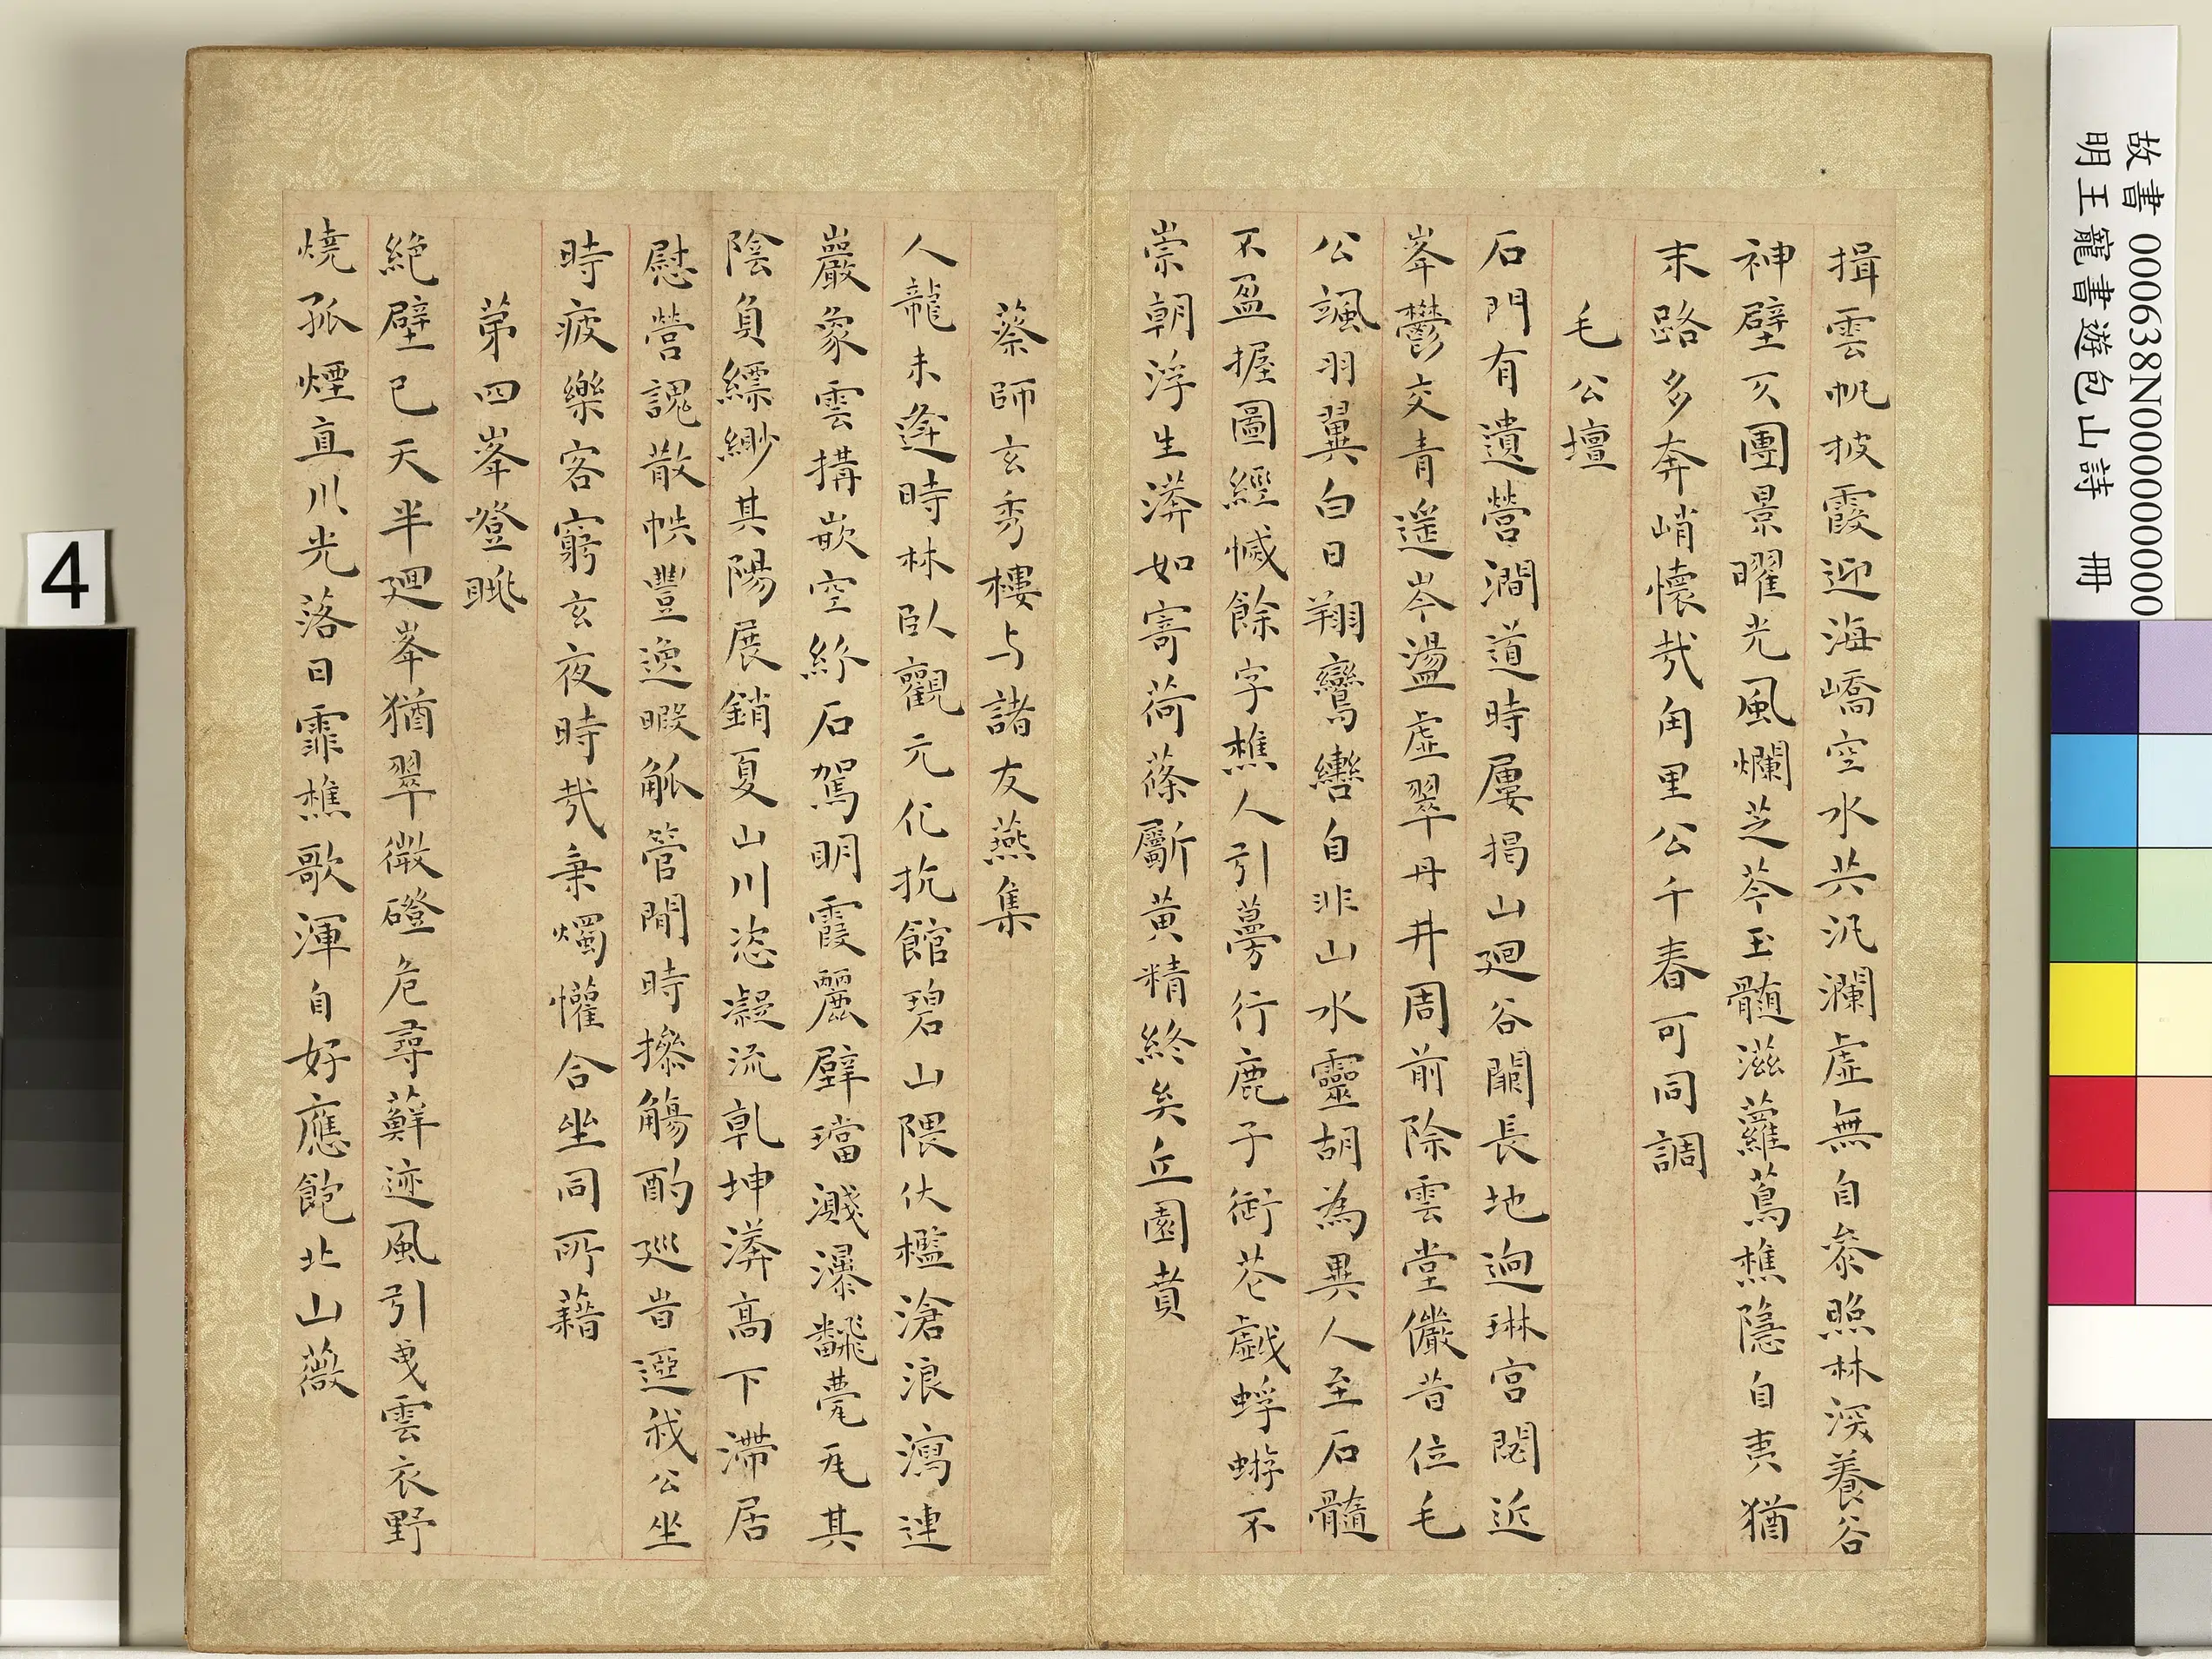 故書 000638N000000000
明王寵書遊包山詩 冊
4
揖雲帆披霞迎海嶠空水共汎瀾虛無自參照林深養谷
神壁仄團景曜光風爛芝苓玉髓滋蘿蔦樵隱自夷猶
末路多奔峭懷哉甪里公千春可同調
毛公壇
石門有遺營澗道時屢揭山迴谷闢長地迥琳宮閟近
峯鬱交青遙岑盪虛翠丹井周前除雲堂儼昔位毛
公颯羽翼白日翔鸞轡自非山水靈胡為異人至石髓
不盈握圖經慽餘字樵人引蔓行鹿子銜花戲蜉蝣不
崇朝浮生漭如寄荷蓧斸黃精終矣丘園賁
蔡師玄秀樓与諸友燕集
人龍未逢時林臥觀元化抗館碧山隈伏檻滄浪瀉連
巖象雲搆嵌空紾石駕明霞麗璧璫濺瀑飜甍瓦其
陰負縹緲其陽展銷夏山川恣凝流乹坤漭高下滯居
慰營䰟散帙豐逸暇觚管閒時摻觴酌廵昔逕我公坐
時疲樂客窮玄夜時哉秉燭懽合坐同所藉
苐四峯登眺
絶壁已天半迴峯猶翠微磴危尋蘚迹風引曳雲衣野
燒孤煙直川光落日霏樵歌渾自好應飽北山薇